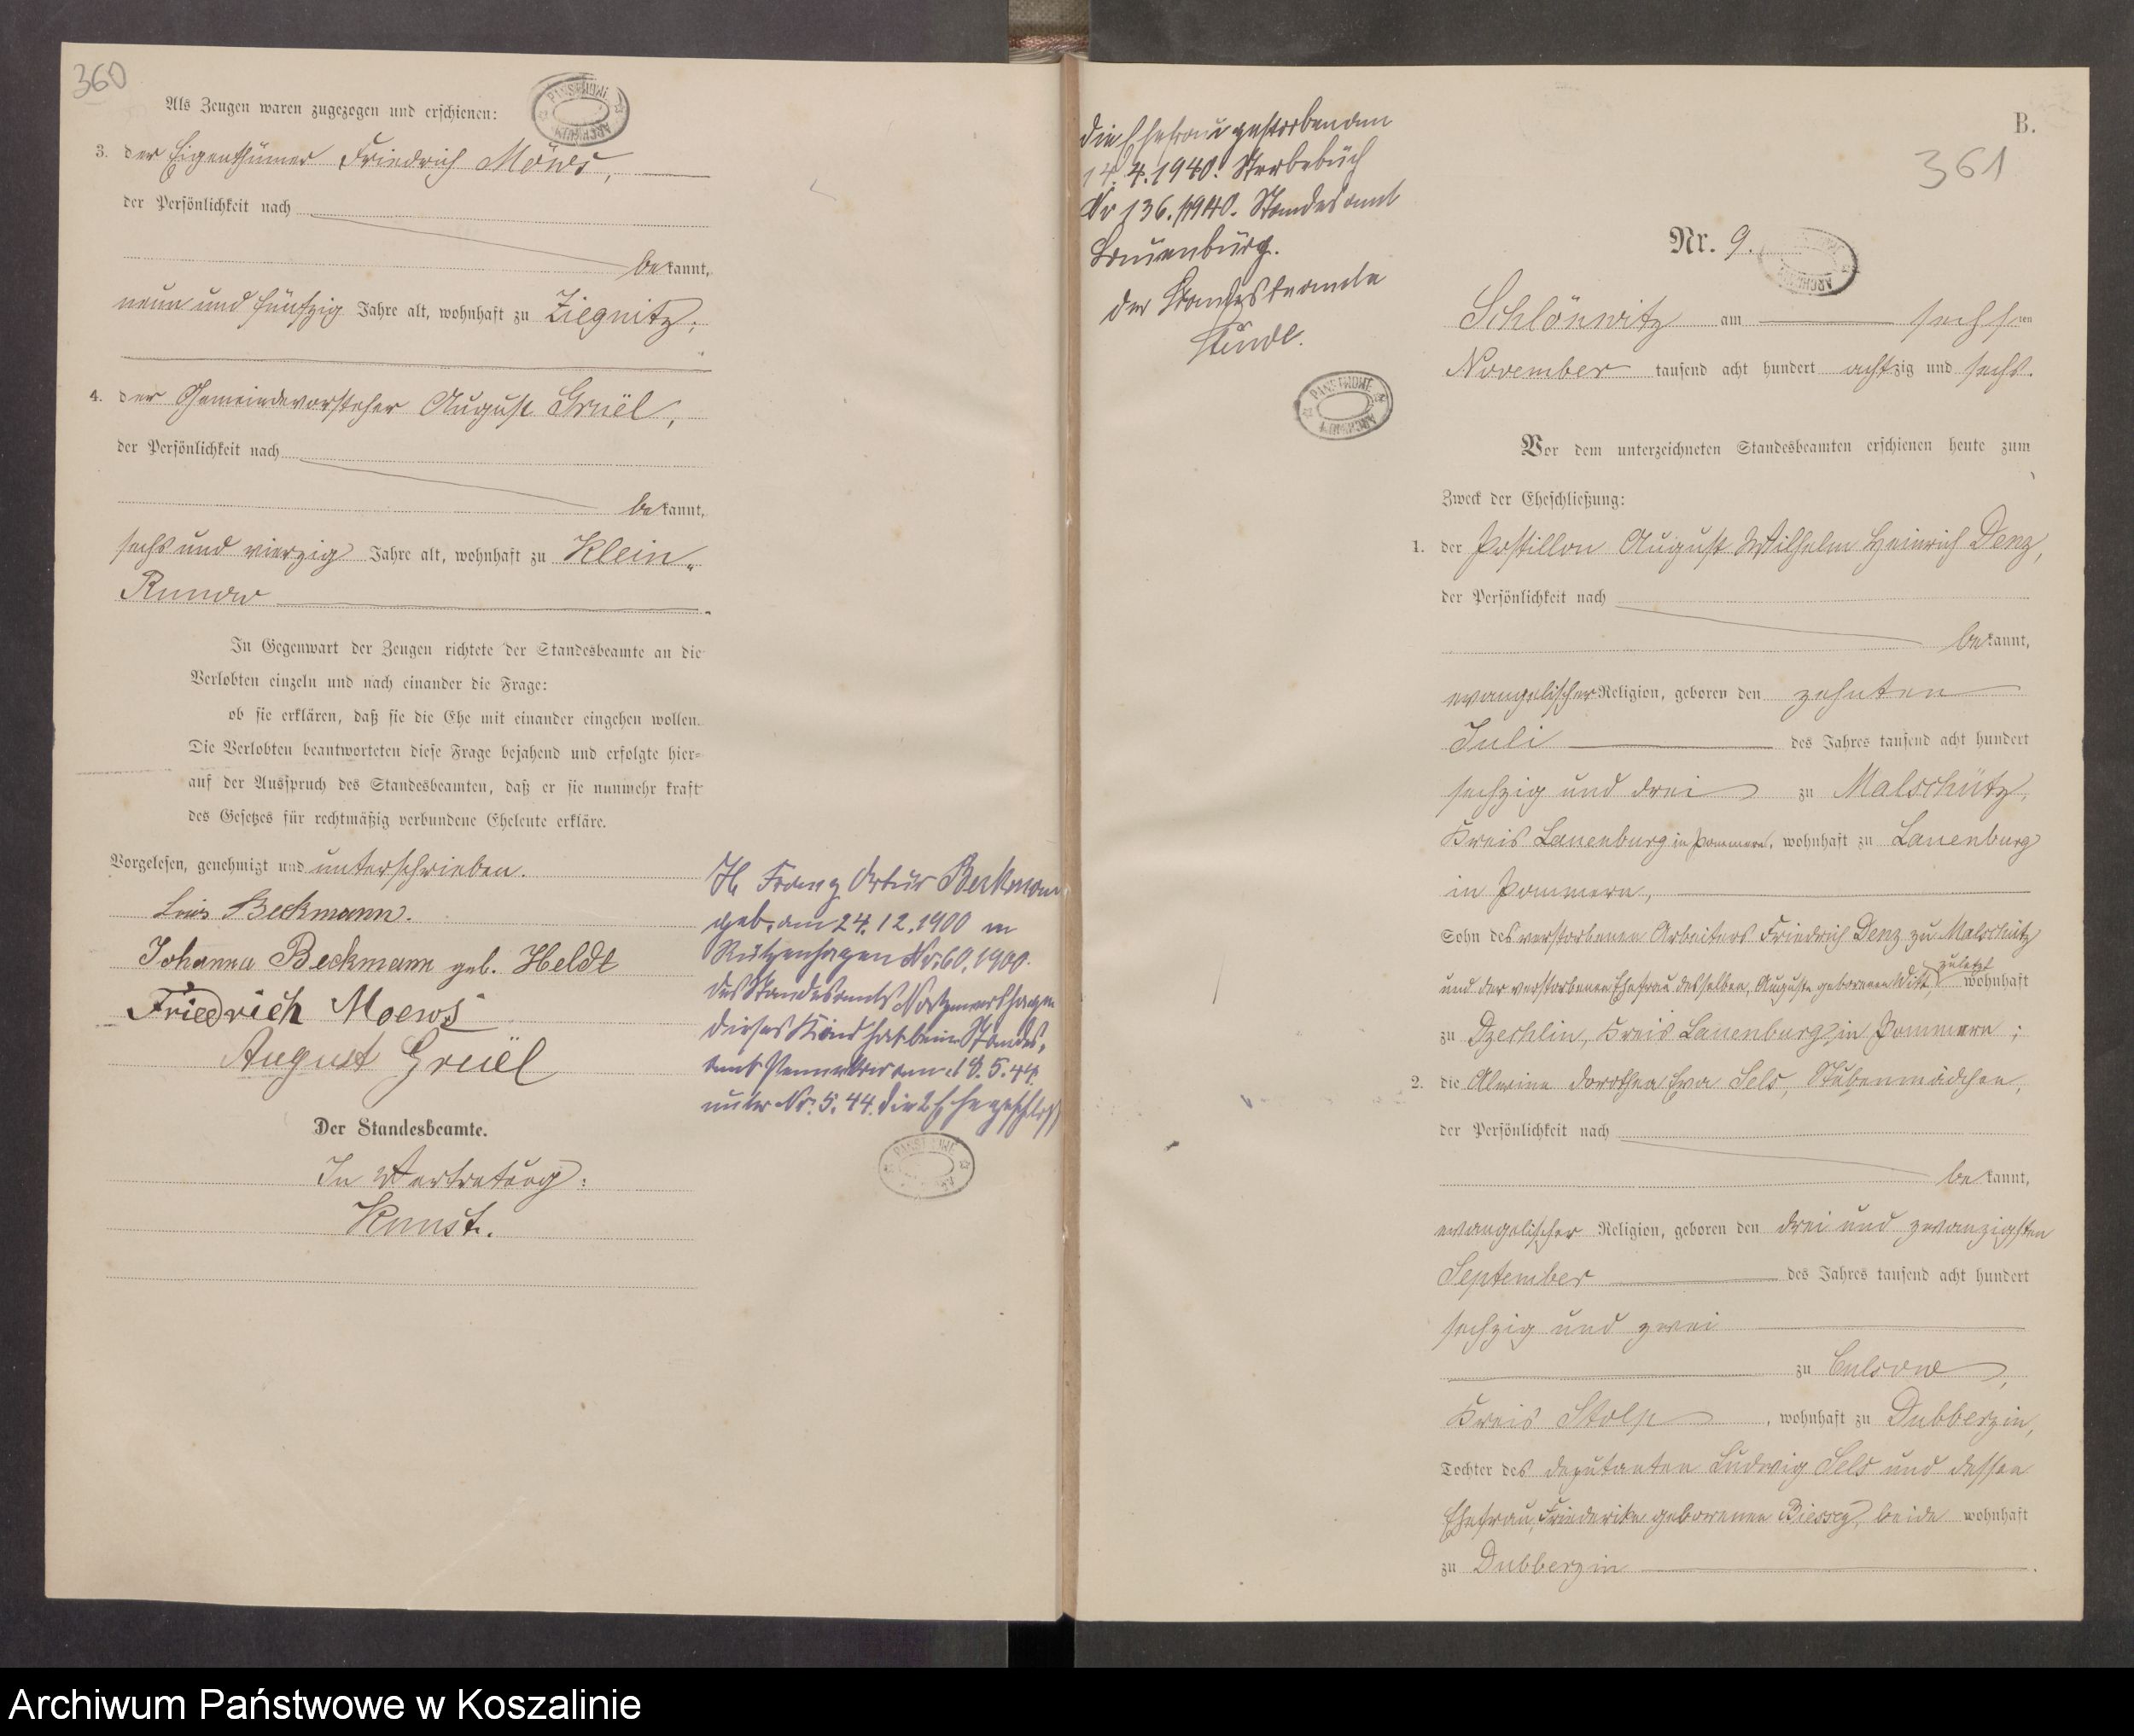 360
Als Zeugen waren zugezogen und erschienen:
3. der Eigenthümer Friedrich Möws,
der Persönlichkeit nach
bekannt,
neun und fünfzig Jahre alt, wohnhaft zu Ziegnitz;
4. der Gemeindevorsteher August Gruël,
der Persönlichkeit nach
bekannt,
sechs und vierzig Jahre alt, wohnhaft zu Klein-
Runow
In Gegenwart der Zeugen richtete der Standesbeamte an die
Verlobten einzeln und nach einander die Frage:
ob sie erklären, daß sie die Ehe mit einander eingehen wollen.
Die Verlobten beantworteten diese Frage bejahend und erfolgte hier-
auf der Ausspruch des Standesbeamten, daß er sie nunmehr kraft
des Gesetzes für rechtmäßig verbundene Eheleute erkläre.
Vorgelesen, genehmigt und unterschrieben.
Beckmann.
Johanna Beckmann geb. Heldt
Friedrich Moews
August Gruël
Der Standesbeamte.
In Vertretung:
Kunst.
Franz Artur Beckmann
geb. am 24.12.1900 in
Rützenhagen Nr. 60, 1900.
des Standesamts
dieses Kind hat beim Standes-
amt am 18.5.44.
unter Nr. 5.44. die 2. Ehe geschloss
PAŃSTWOWE ARCHIWUM
die Ehefrau gestorben am
14.4.1940. Sterbebuch
Nr 136./1940. Standesamt
Lauenburg.
der Standesbeamte
B.
361
Nr. 9.
Schlönwitz am sechsten
November tausend acht hundert achtzig und sechs.
Vor dem unterzeichneten Standesbeamten erschienen heute zum
Zweck der Eheschließung:
1. der Postillon August Wilhelm Heinrich Denz,
der Persönlichkeit nach
bekannt,
evangelischer Religion, geboren den zehnten
Juli des Jahres tausend acht hundert
sechzig und drei zu Malschütz,
Kreis Lauenburg in Pommern, wohnhaft zu Lauenburg
in Pommern,
Sohn des verstorbenen Arbeiters Friedrich Denz zu Malschütz
und der verstorbenen Ehefrau desselben, Auguste geborenen Witt, zuletzt wohnhaft
zu Dzechlin, Kreis Lauenburg in Pommern;
2. die Alwine Dorothea Eva Sels, Stubenmädchen,
der Persönlichkeit nach
bekannt,
evangelischer Religion, geboren den drei und zwanzigsten
September des Jahres tausend acht hundert
sechzig und zwei
zu Culsow,
Kreis Stolp, wohnhaft zu Dubberzin,
Tochter des Deputanten Ludwig Sels und dessen
Ehefrau, Friederike geborenen beide wohnhaft
zu Dubberzin
Archiwum Państwowe w Koszalinie